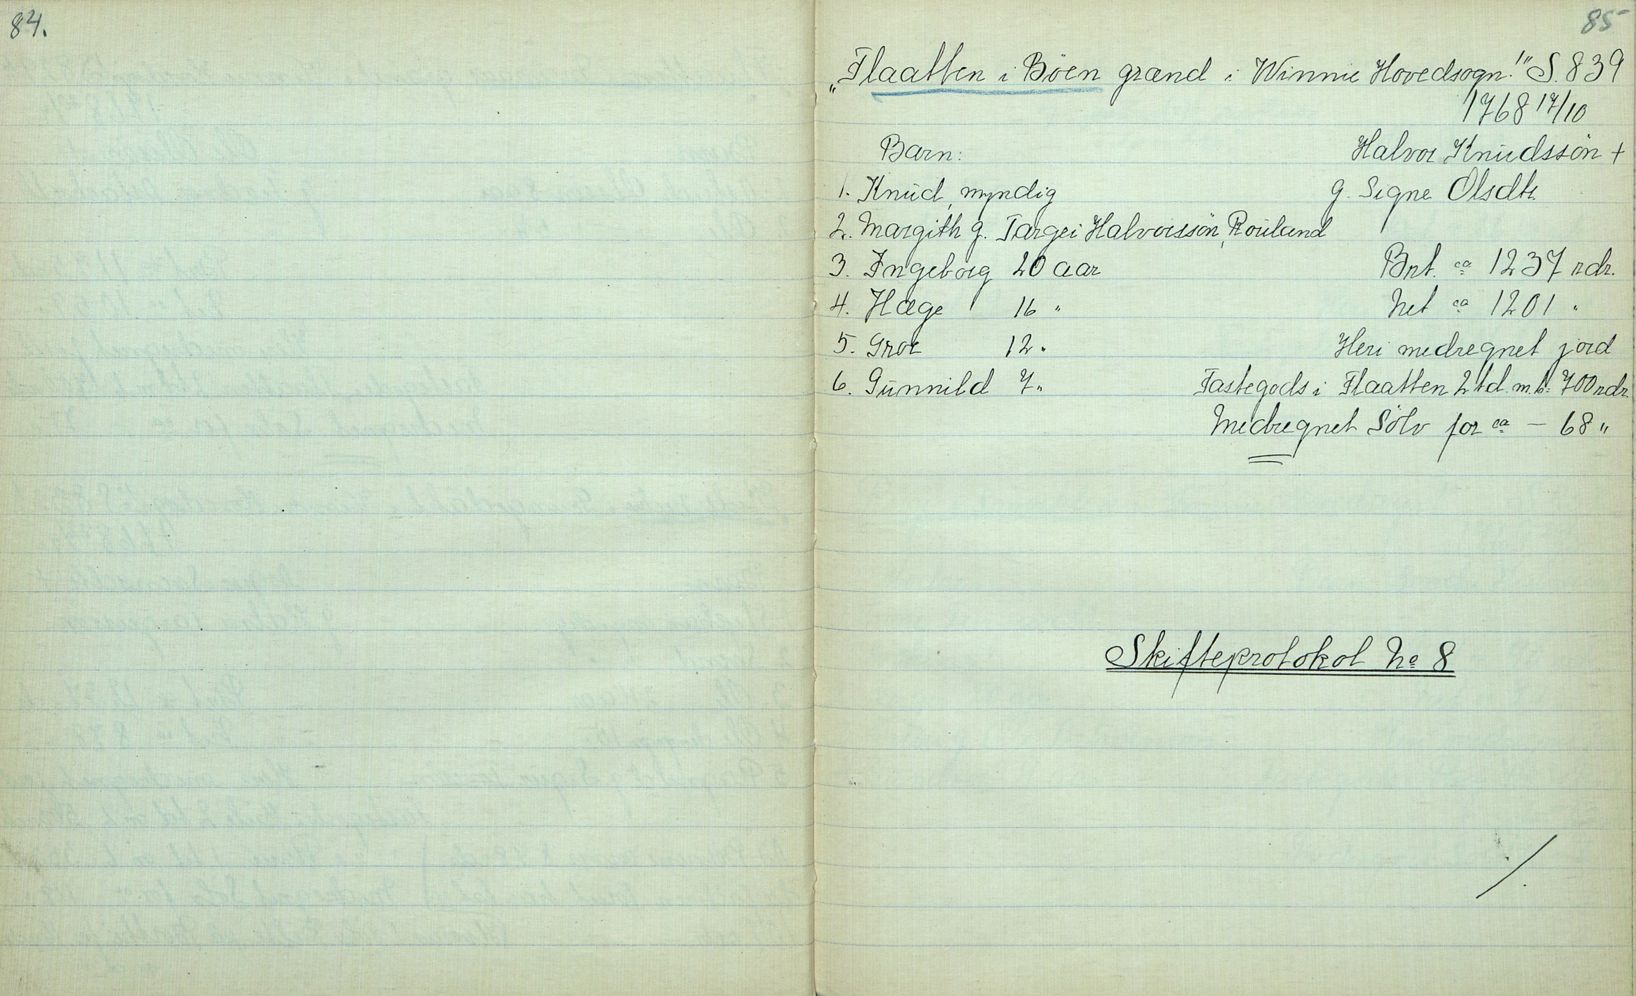 84.
85
„Flaatten i Böen grænd i Winnie Hovedsogn!" S. 839
1768 17/10
Barn: Halvor Knudssön +
1. Knud, myndig g. Signe Olsdtr.
2. Margith g. Targei Halvorssön, Rouland
3. Ingeborg 20 aar Brt. ca 1237 rdr.
4. Hæge 16 " Net ca 1201 "
5. Groe 12 " Heri medregnet jord
6. Gunnild 7 " Fastegods i Flaatten 2 td. m.b. 700 rdr.
Medregnet Sölv for ca – 68 "
Skifteprotokol No 8